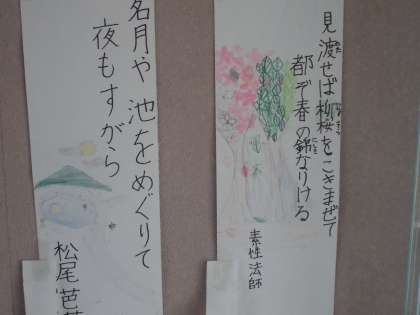 見渡せば柳桜をこきまぜて
都ぞ春の錦なりける
素性法師
名月や 池をめぐりて
夜もすがら
松尾芭蕉